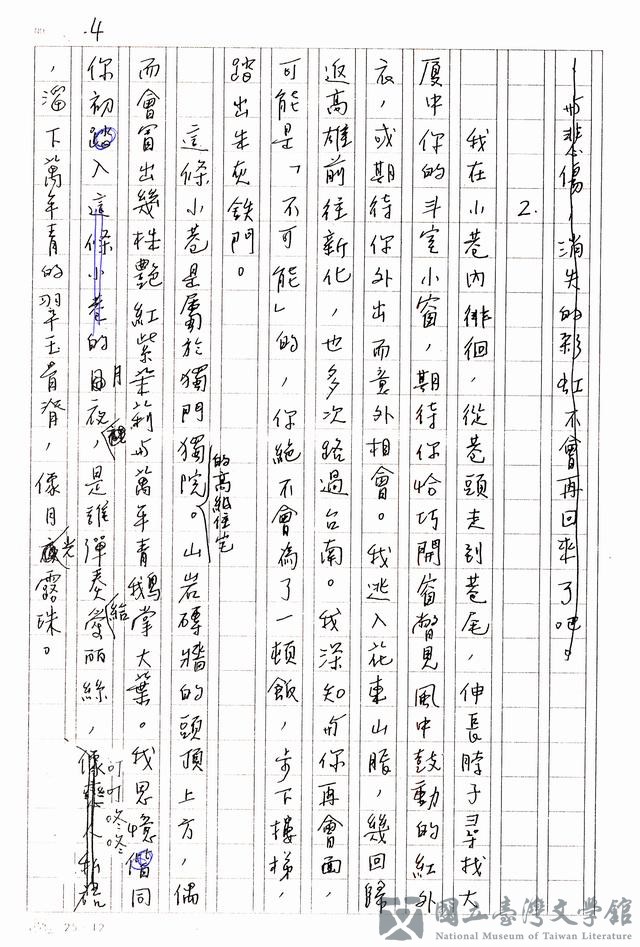 4
一場悲傷,消失的彩虹不會再回來了吧。
2.
我在小巷內徘徊,從巷頭走到巷尾,伸長脖子尋找大
廈中你的斗室小窗,期待你恰巧開窗瞥見風中鼓動的紅外
衣,或期待你外出而意外相會。我逃入花東山脂,幾回歸
返高雄前往新化,也多次路過台南。我深知与你再會面,
可能是「不可能」的,你絕不會為了一頓飯,步下樓梯,
踏出朱灰鉄門。
這條小巷是屬於獨門獨院的高級住宅。山岩磚牆的頭頂上方,偶
而會冒出幾株艷紅紫茉莉与萬年青鵝掌大葉。我思憶偕同
你初踏入這條小巷的月夜,是誰彈奏給愛麗絲,叮叮咚咚
像戀人私語
,溜下萬年青的翠玉背脊,像月光露珠。
25 12
國立臺灣文學館
National Museum of Taiwan Literature